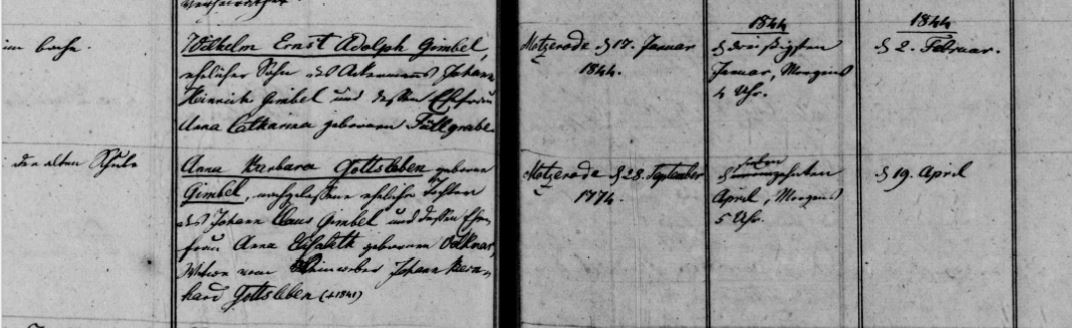 im Bache.
Wilhelm Ernst Adolph Gimbel,
ehelicher Sohn des Ackermanns Johann
Heinrich Gimbel und dessen Ehefrau
Anna Catharina geborenen Füllgrabe.
Motzerode d 17. Januar
1844.
1844
d dreißigsten
Januar, Morgens
4 Uhr.
1844
d 2. Februar.
der alten Schule
Anna Barbara Gottsleben geborene
Gimbel, nachgelassene eheliche Tochter
des Johann Claus Gimbel und dessen Ehe-
frau Anna Elisabeth geborenen Volkmar,
Witwe vom Leinweber Johann Bern-
hard Gottsleben (+1841)
Motzerode d 28. September
1774.
sieben
d zehnten
April, Morgens
5 Uhr.
d 19. April